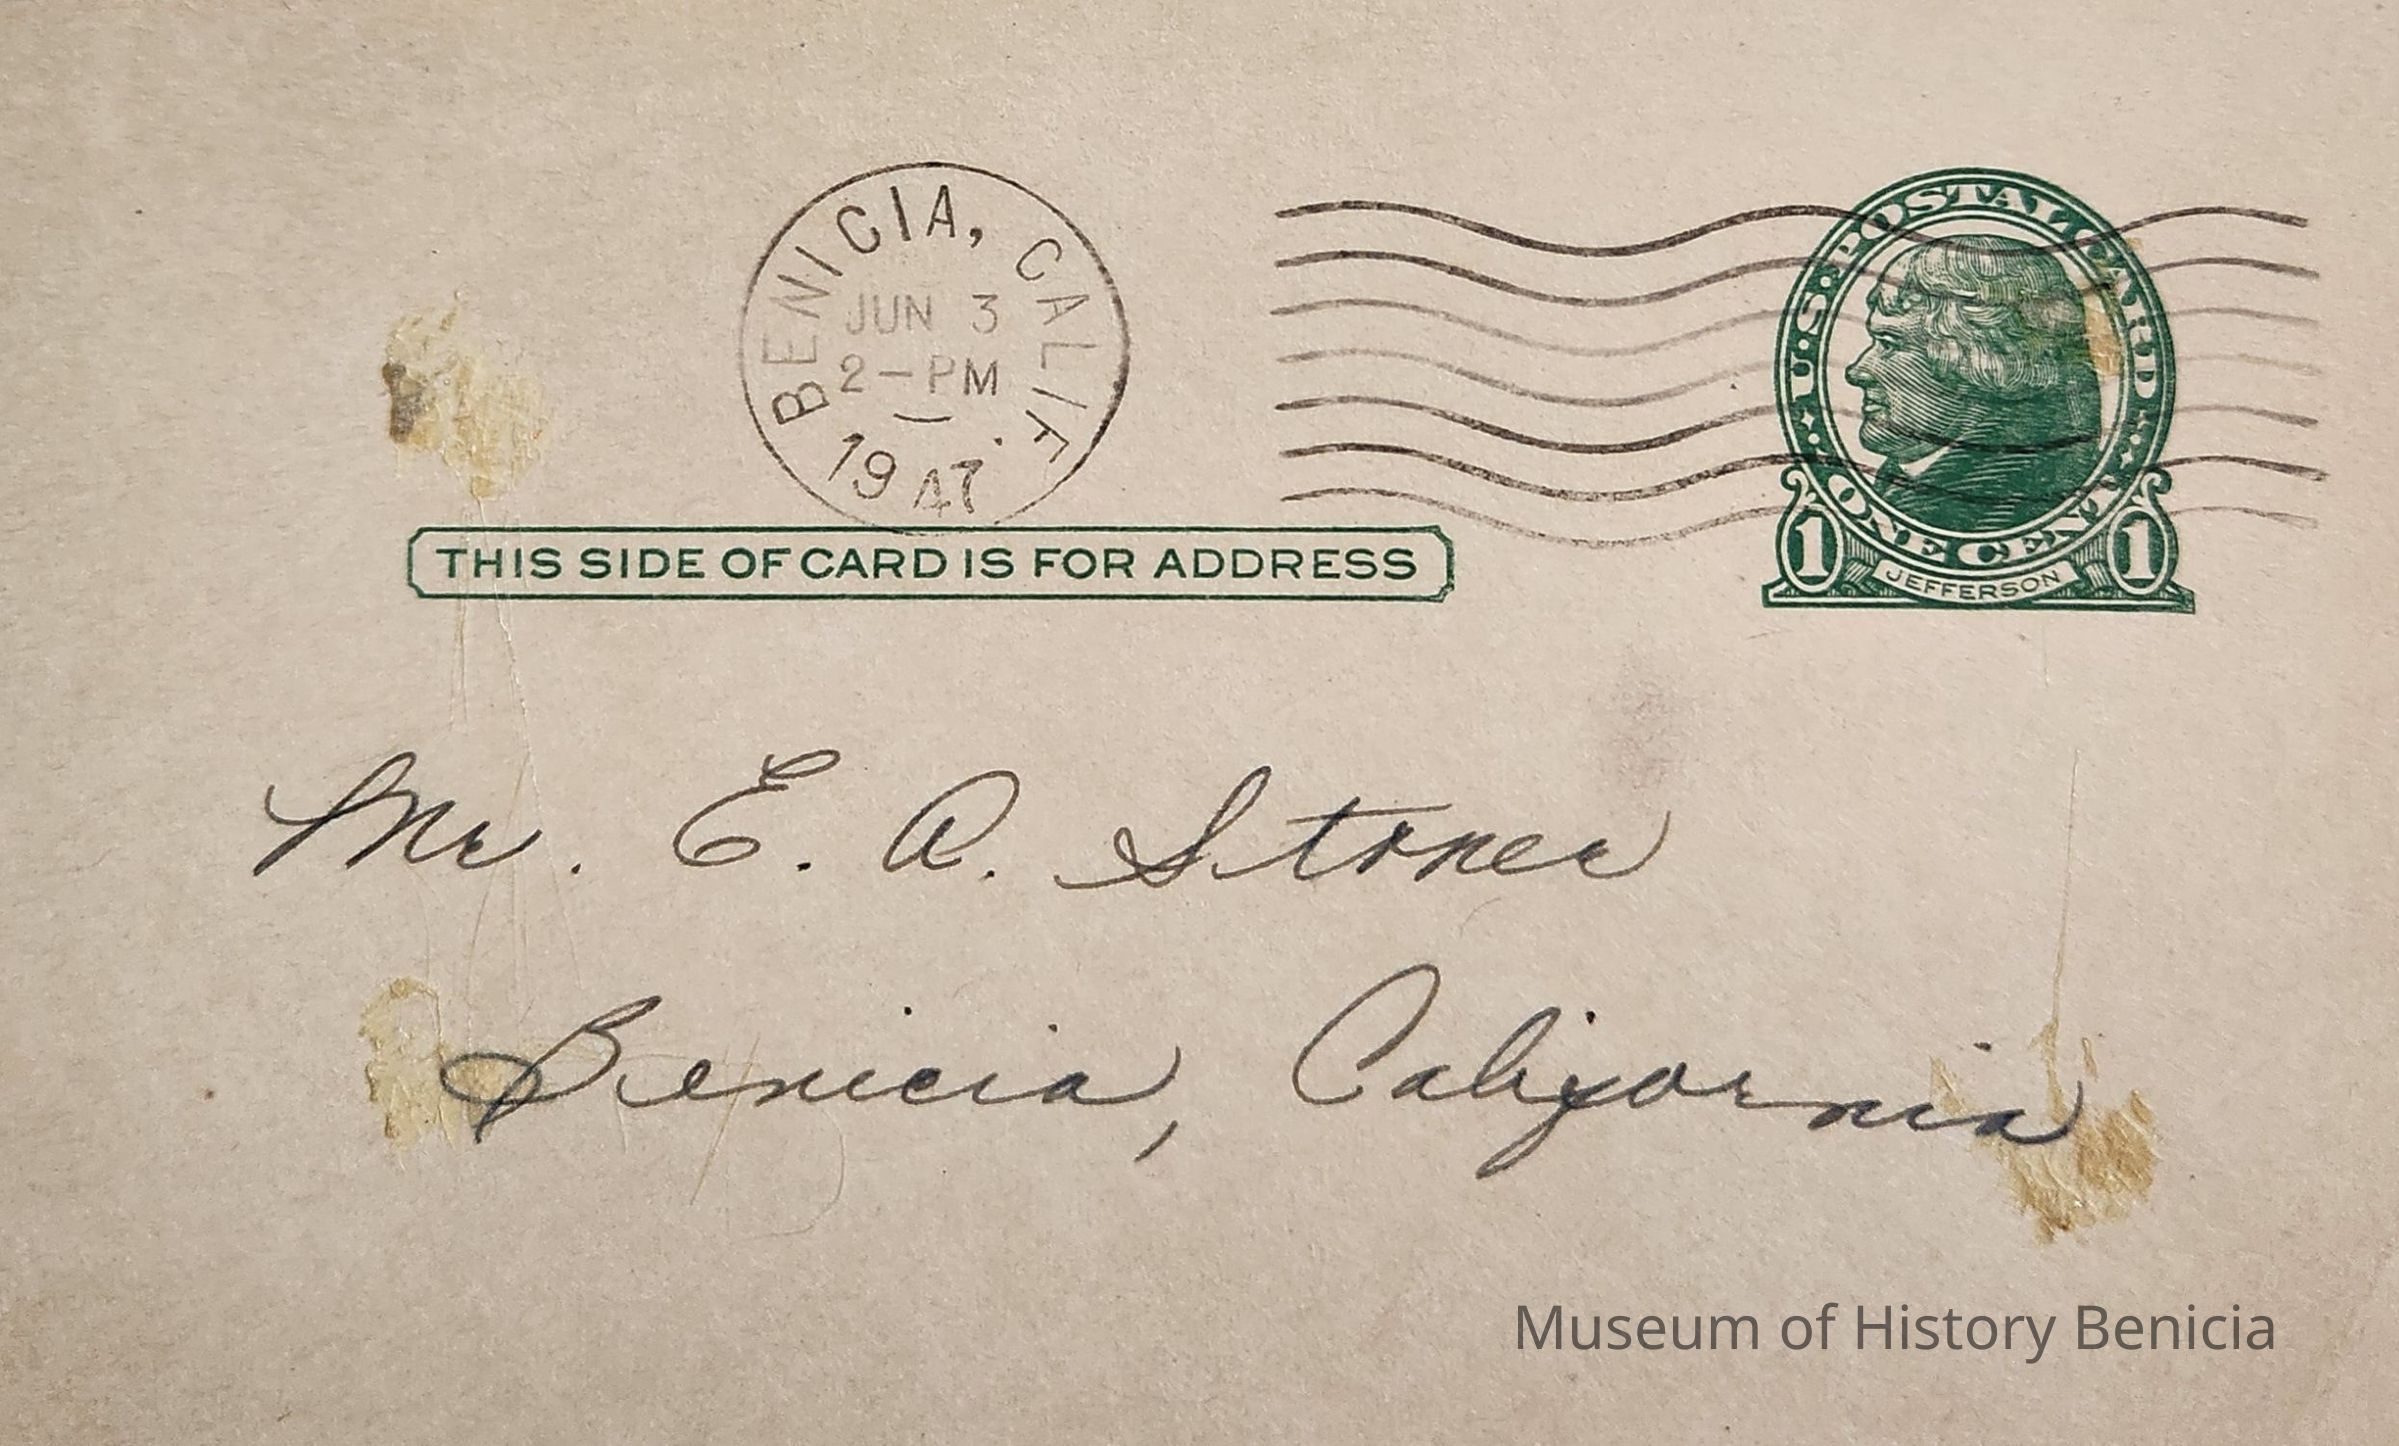 BENICIA, CALIF.
JUN 3
2-PM
1947
U.S. POSTAL CARD
ONE CENT
1 JEFFERSON 1
THIS SIDE OF CARD IS FOR ADDRESS
Mr. E. A. Stoner
Benicia, California
Museum of History Benicia